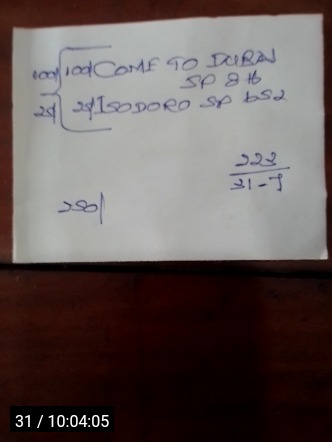 100/ 100/ COME TO DUBAI
SP 8 16
25/ 25/ ISODORO SP 652
223
31-7
250/
31 / 10:04:05